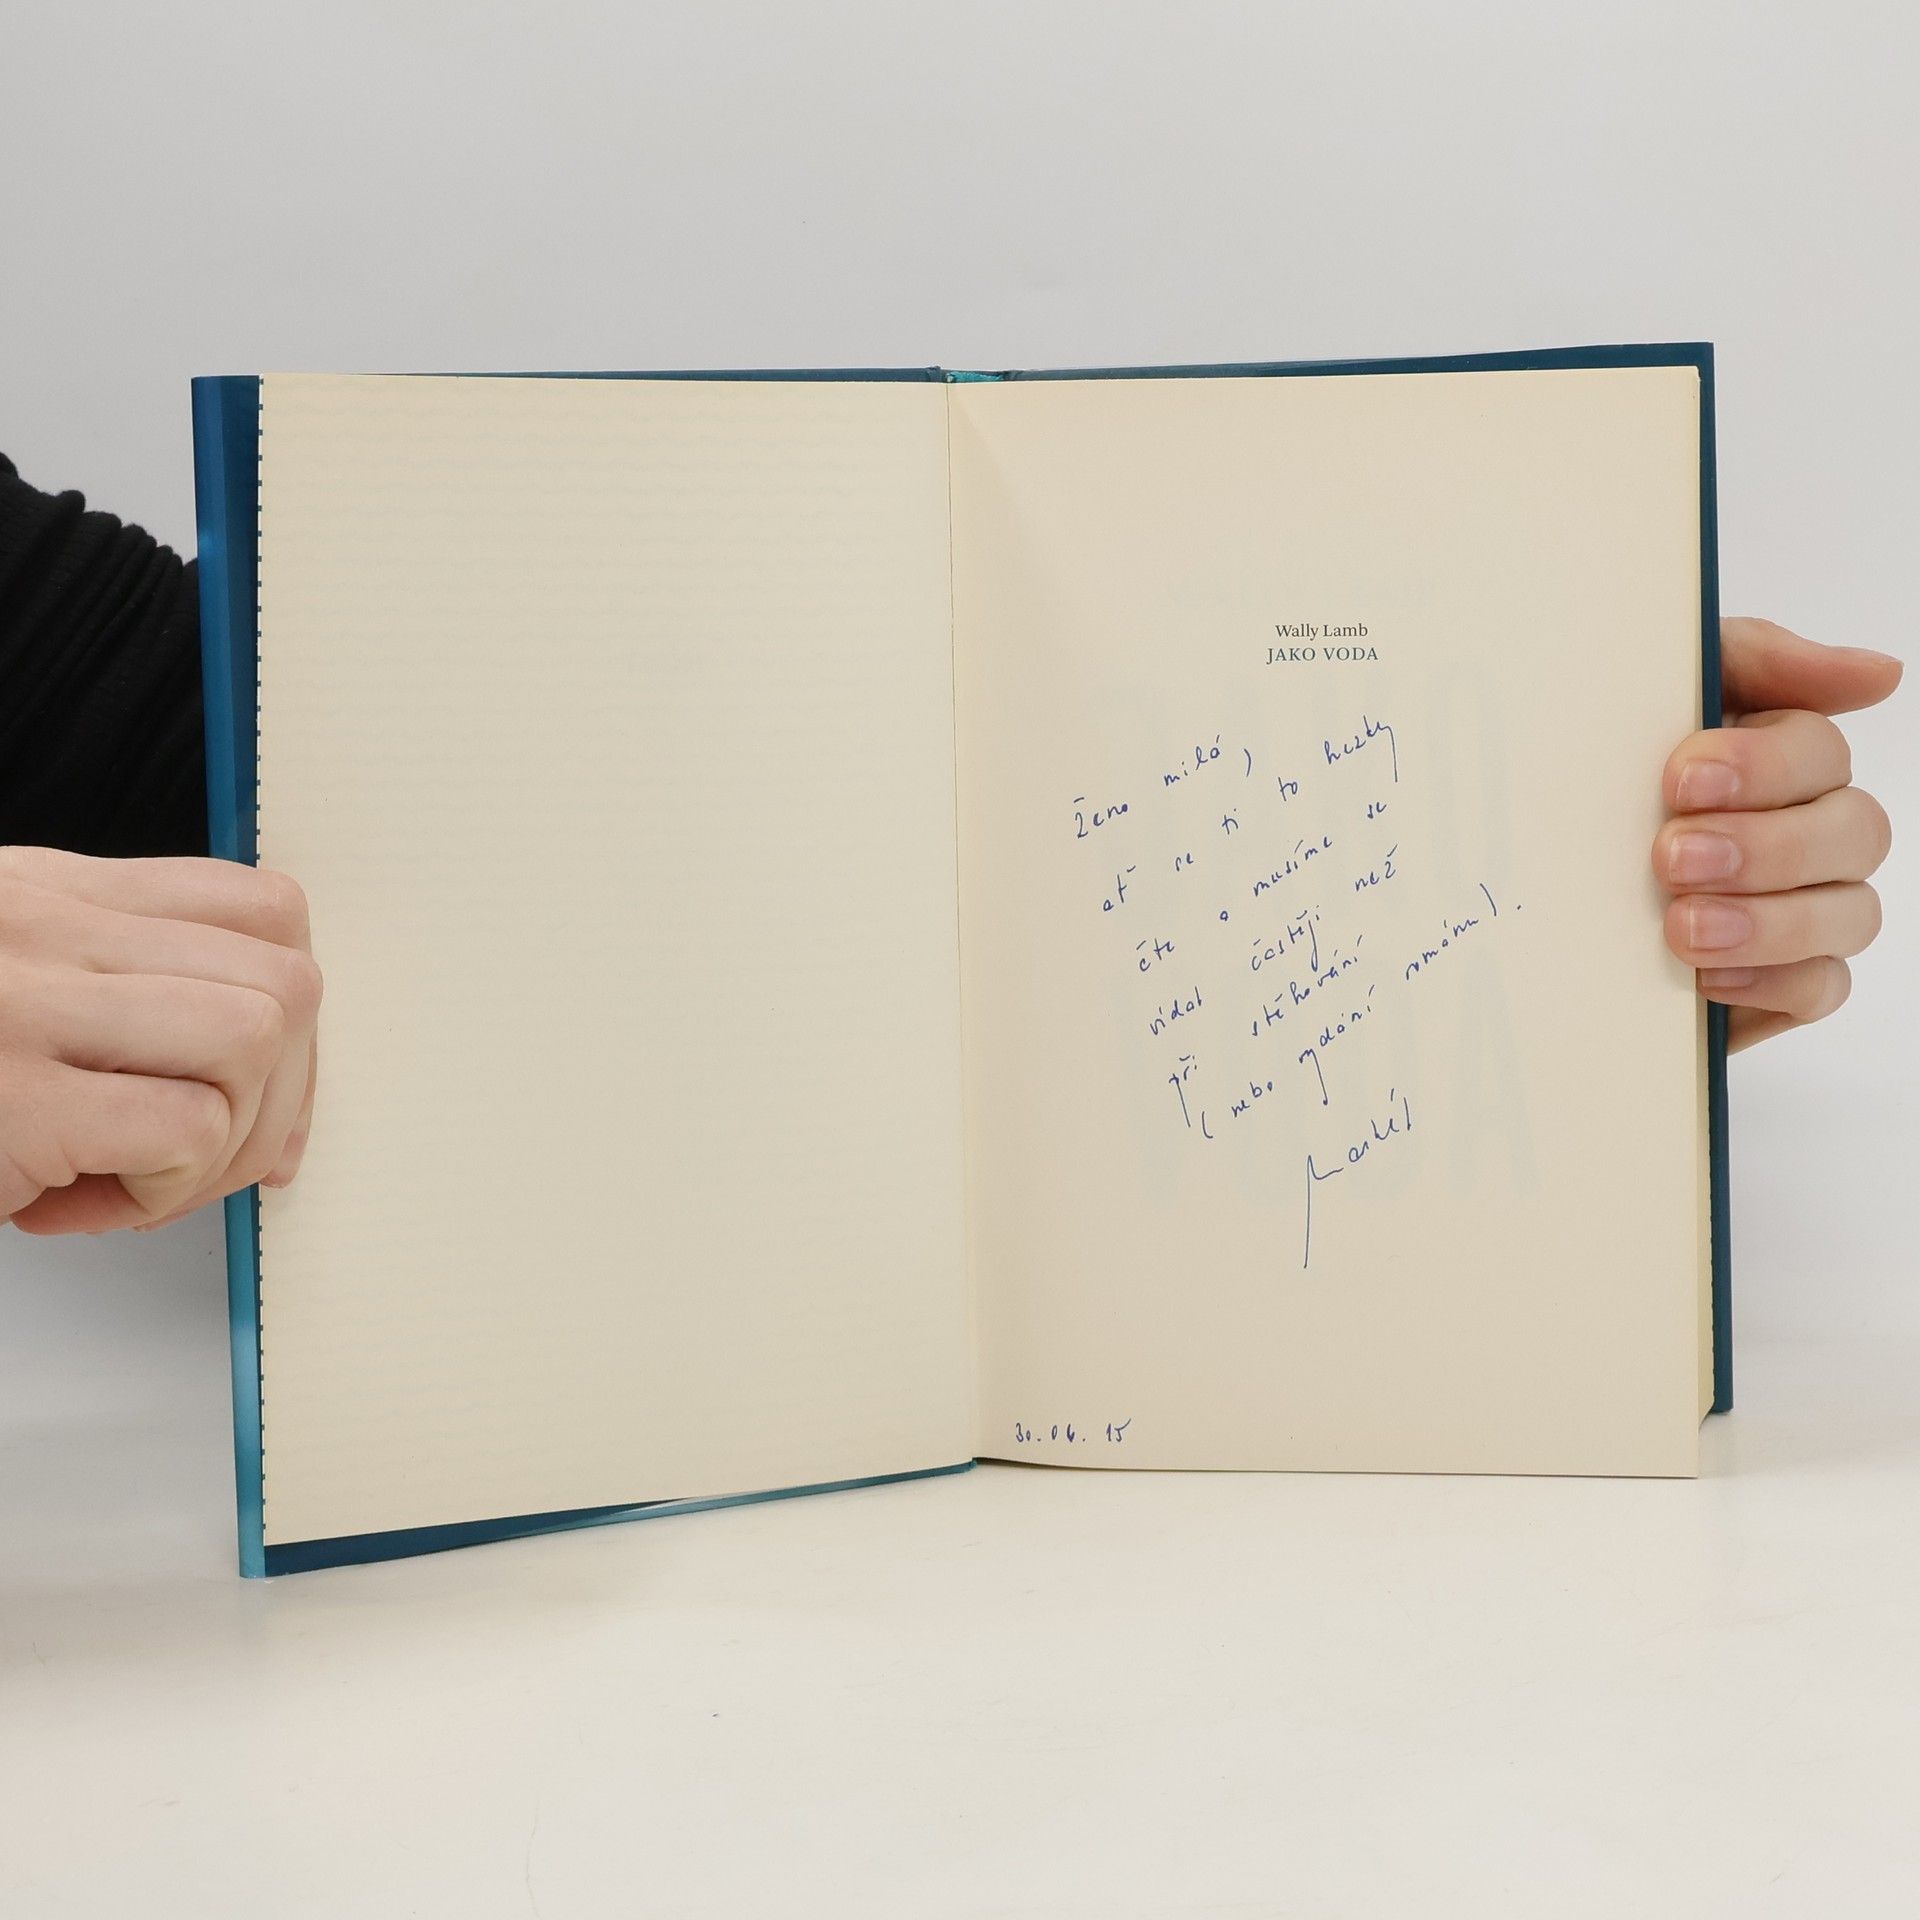 Wally Lamb
JAKO VODA
Ženo milá,
ať se ti to hezky
čte a musíme se
vídat častěji než
při stěhování
(nebo vydání románu).
30.06.15